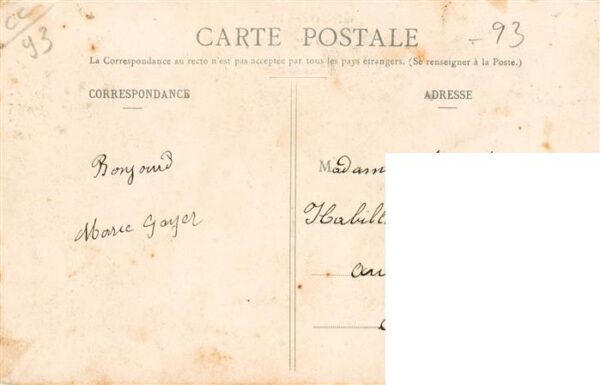 CC
93
-93
CARTE POSTALE
La Correspondance au recto n'est pas acceptée par tous les pays étrangers. (Se renseigner à la Poste.)
CORRESPONDANCE
Bonjour
Marie Goyer
ADRESSE
Madam
Habill
au